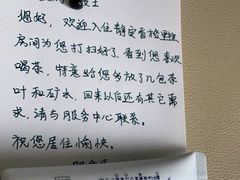 您好，欢迎入住静安香格里拉
房间为您打扫好了，看到您喜欢
喝茶，特意给您多放了几包茶
叶和矿水，回来以后还有其它需
求，请与服务中心联系。
祝您居住愉快。